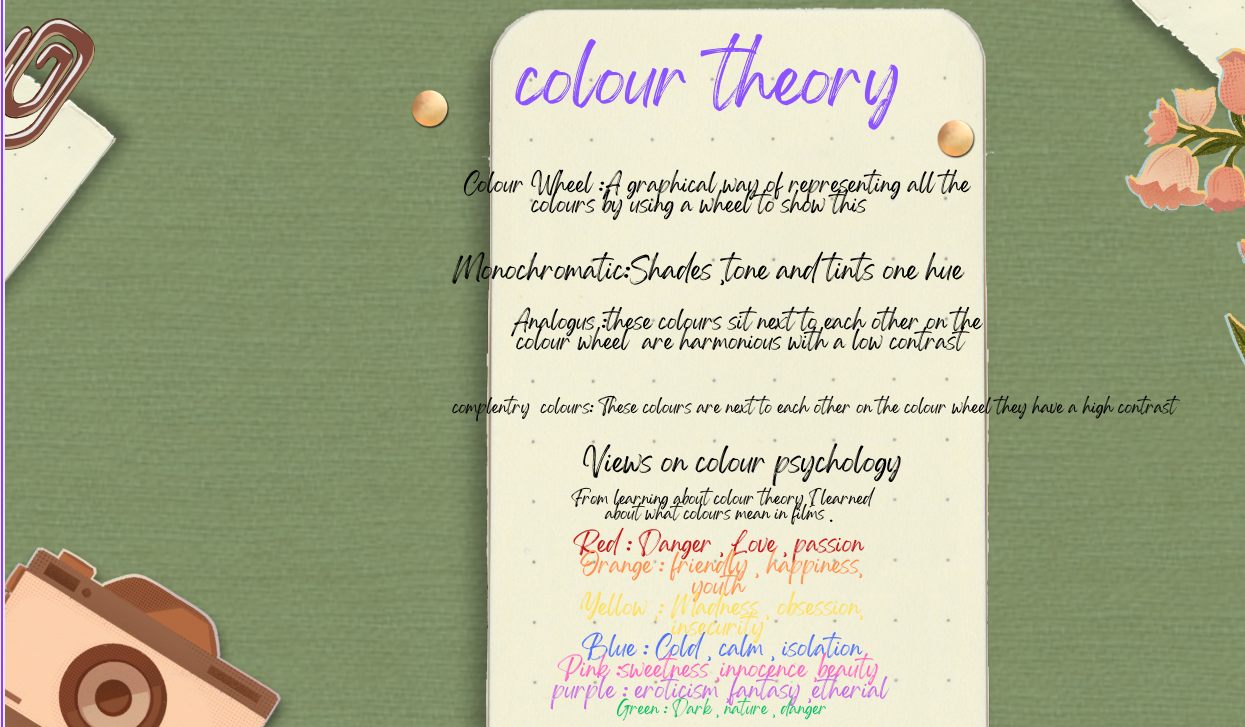 colour theory
Colour Wheel :A graphical way of representing all the
colours by using a wheel to show this
Monochromatic:Shades ,tone and tints one hue
Analogus :these colours sit next to each other on the
colour wheel are harmonious with a low contrast
complentry colours: These colours are next to each other on the colour wheel they have a high contrast
Views on colour psychology
From learning about colour theory I learned
about what colours mean in films .
Red : Danger , Love , passion
Orange : friendly , happiness,
youth
Yellow : Madness , obsession,
insecurity
Blue : Cold , calm , isolation,
Pink :sweetness innocence beauty
purple : eroticism fantasy ,etherial
Green : Dark , nature , danger